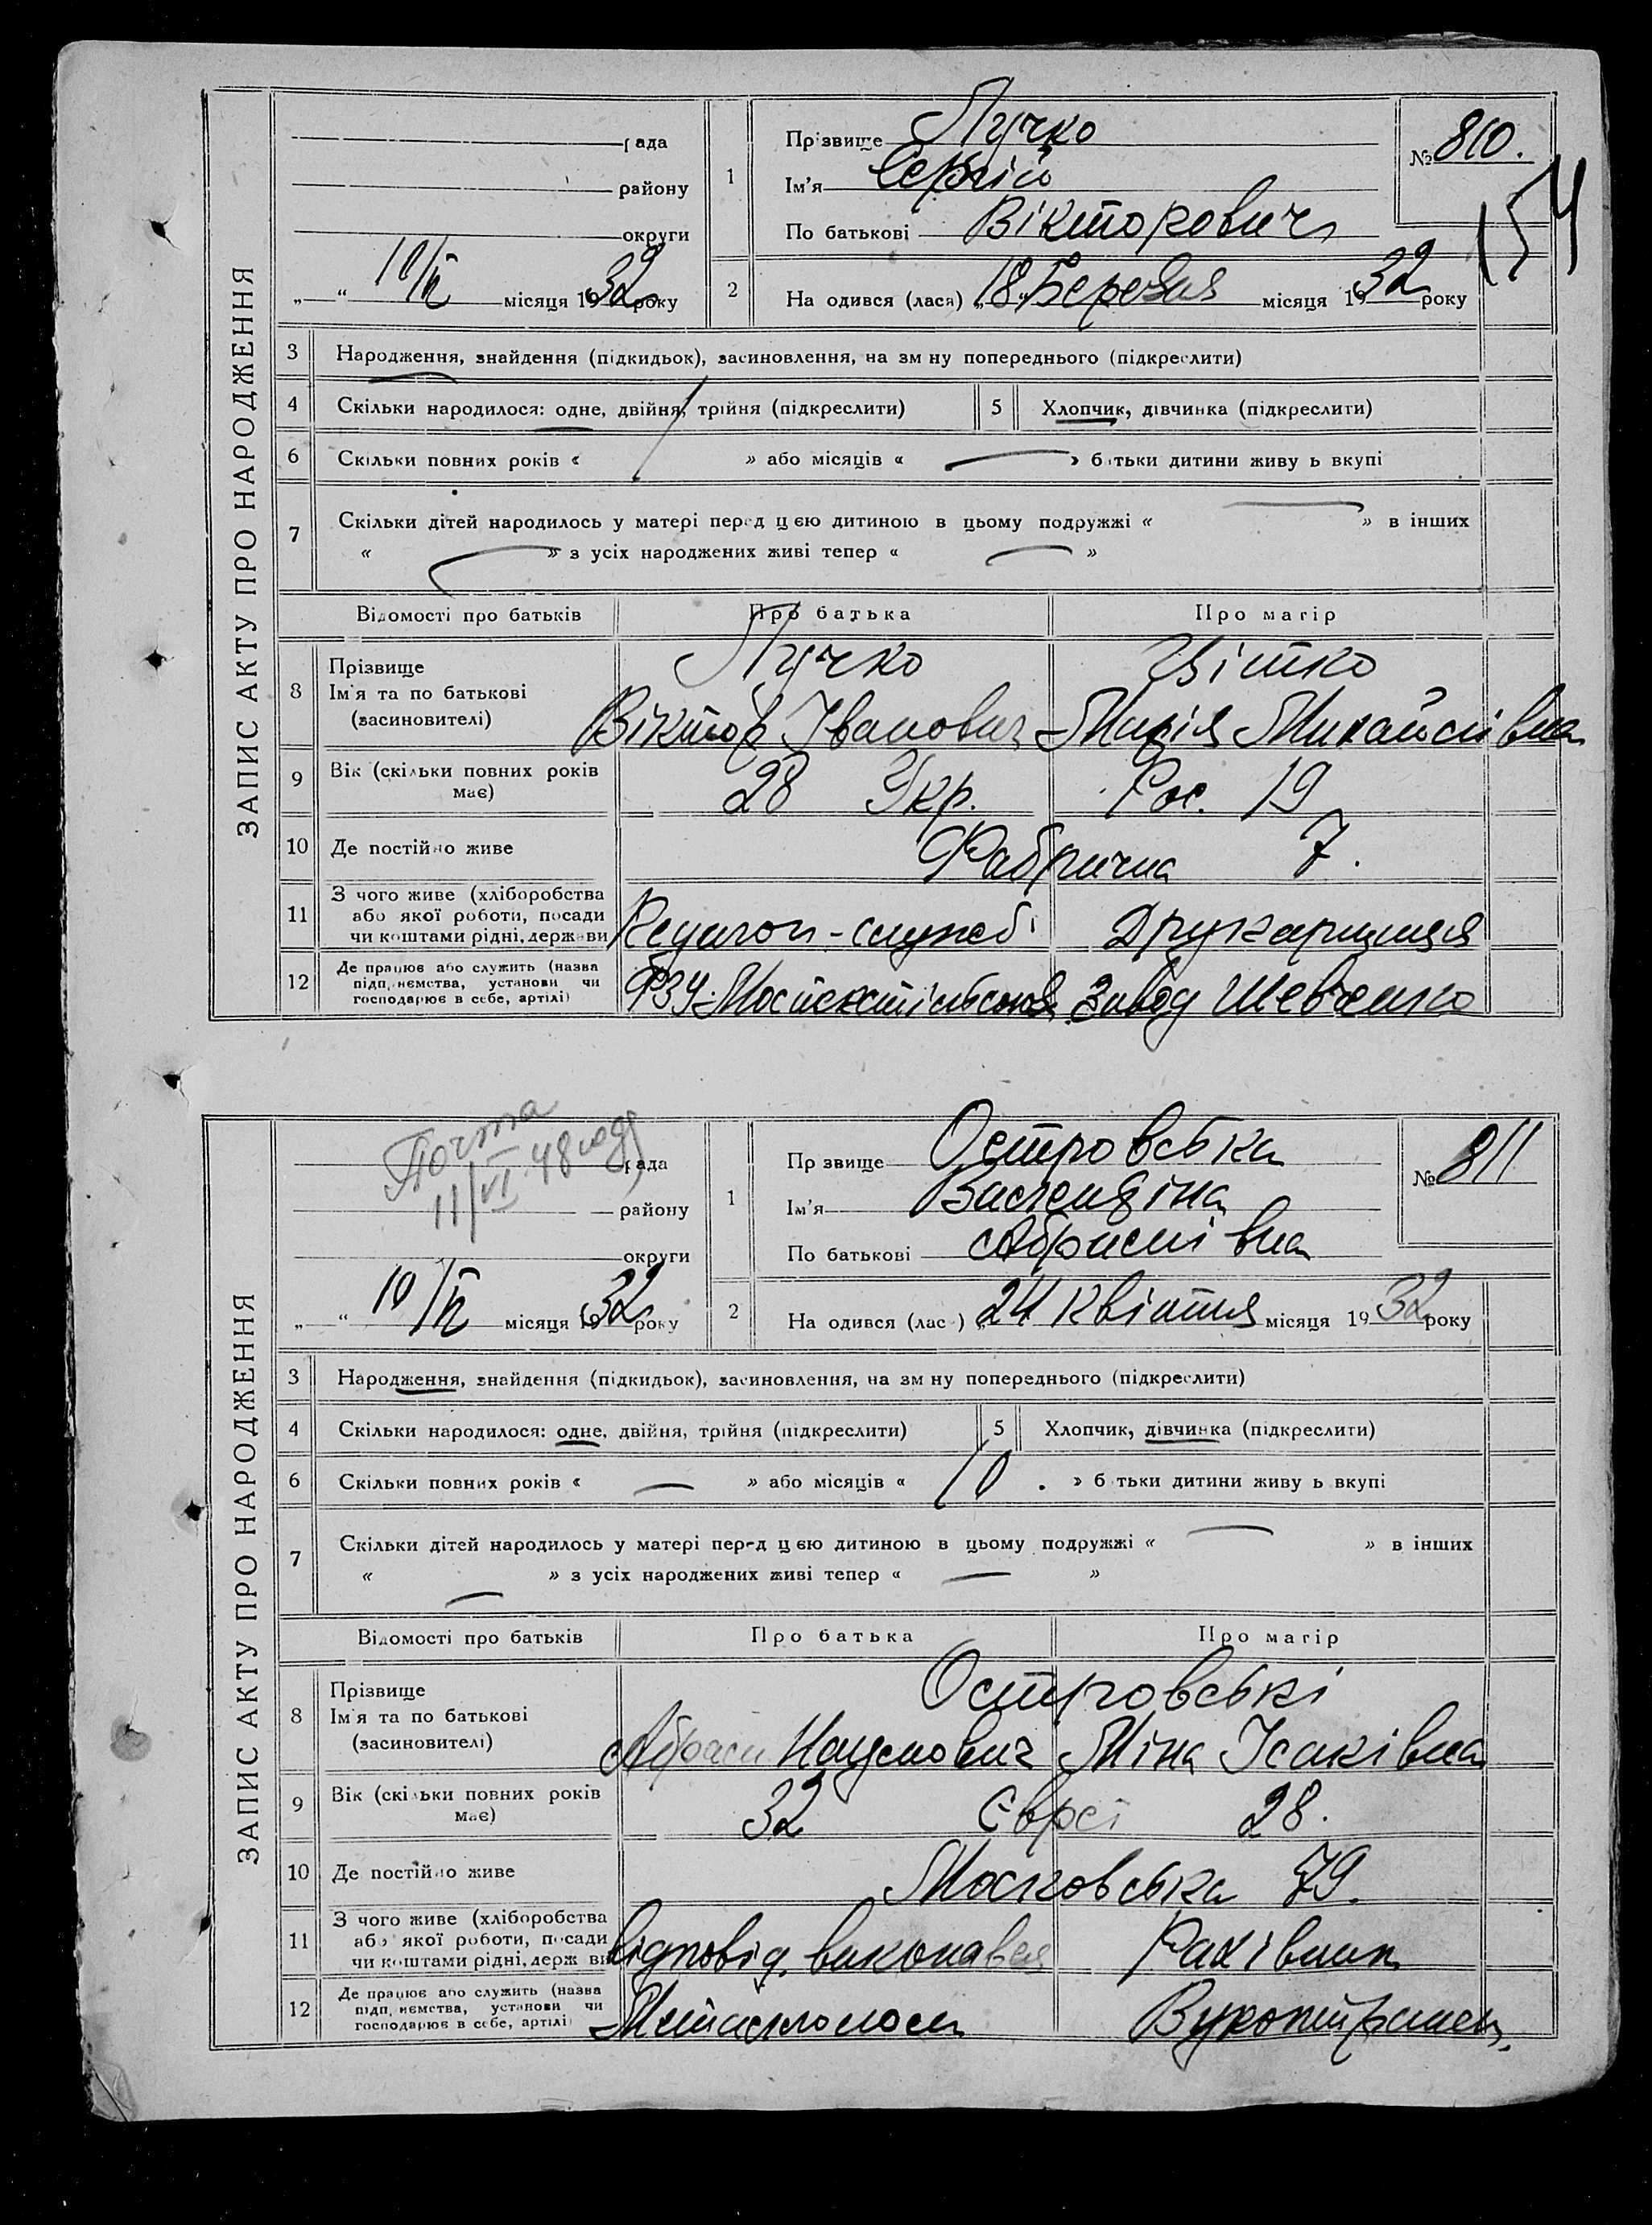 ЗАПИС АКТУ ПРО НАРОДЖЕННЯ
рада
району
округи
„ “ 10/IV місяця 1932 року
1
Прізвище Пучко
Ім'я Сергій
По батькові Вікторович
№ 810.
154
2
На одився (лася) „18“ Березня місяця 1932 року
3 Народження, знайдення (підкидьок), засиновлення, на зм ну попереднього (підкреслити)
4 Скільки народилося: одне, двійня, трійня (підкреслити) 5 Хлопчик, дівчинка (підкреслити)
6 Скільки повних років « » або місяців « » б тьки дитини живу ь вкупі
7 Скільки дітей народилось у матері перед цією дитиною в цьому подружжі « » в інших
« » з усіх народжених живі тепер « »
Відомості про батьків Про батька Про матір
8 Прізвище
Ім'я та по батькові
(засиновителі)
Пучко Цвітко
Віктор Іванович Марія Михайлівна
9 Вік (скільки повних років
має)
28 Укр. Рос. 19
10 Де постійно живе Фабрична 7.
11 З чого живе (хліборобства
або якої роботи, посади
чи коштами рідні, держави
службі Друкарниця
12 Де працює або служить (назва
підприємства, установи чи
господарює в себе, артілі)
ФЗУ Завод Шевченко
ЗАПИС АКТУ ПРО НАРОДЖЕННЯ
Почта
11/VI 48 года
рада
району
округи
„ “ 10/IV місяця 1932 року
1
Пр звище Островська
Ім'я Валендіна
По батькові Абрамівна
№ 811
2
На одився (лас ) „24 квітня місяця 1932 року
3 Народження, знайдення (підкидьок), засиновлення, на зм ну попереднього (підкреслити)
4 Скільки народилося: одне, двійня, трійня (підкреслити) 5 Хлопчик, дівчинка (підкреслити)
6 Скільки повних років « — » або місяців « 10 . » б тьки дитини живу ь вкупі
7 Скільки дітей народилось у матері перед цією дитиною в цьому подружжі « — » в інших
« — » з усіх народжених живі тепер « — »
Відомості про батьків Про батька Про матір
8 Прізвище
Ім'я та по батькові
(засиновителі)
Островські
Абрам Наумович Міна Ісаківна
9 Вік (скільки повних років
має)
32 Євреї 28.
10 Де постійно живе Московська 79.
11 З чого живе (хліборобства
або якої роботи, посади
чи коштами рідні, держ ви
відповід. виконавец Рахівник
12 Де працює або служить (назва
підприємства, установи чи
господарює в себе, артілі)
Металолом